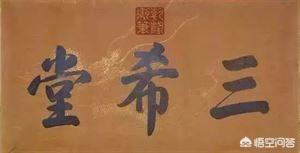 三希堂
悟空问答